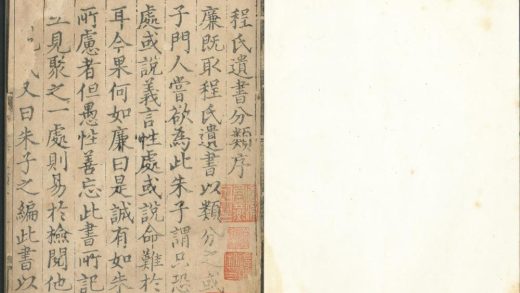 程氏遺書分類序
廉既取程氏遺書以類分之或
子門人嘗欲為此朱子謂只恐
處或說義言性處或說命難於
耳今果何如廉曰是誠有如朱
所慮者但愚性善忘此書所記
見聚之一處則易於檢閱他
又曰朱子之編此書以